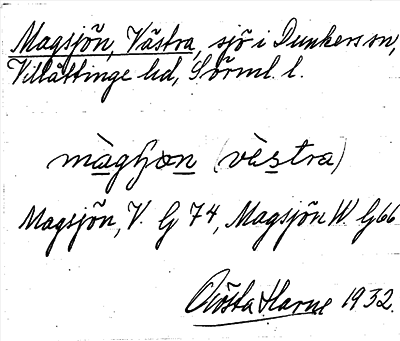 Magsjön, Västra, sjö i Dunkers sn,
Villåttinge hd, Sörml. l.
màgʃɷn (vàstra)
Magsjön, V. G 74, Magsjön W. G 66
Gösta Harne 1932.